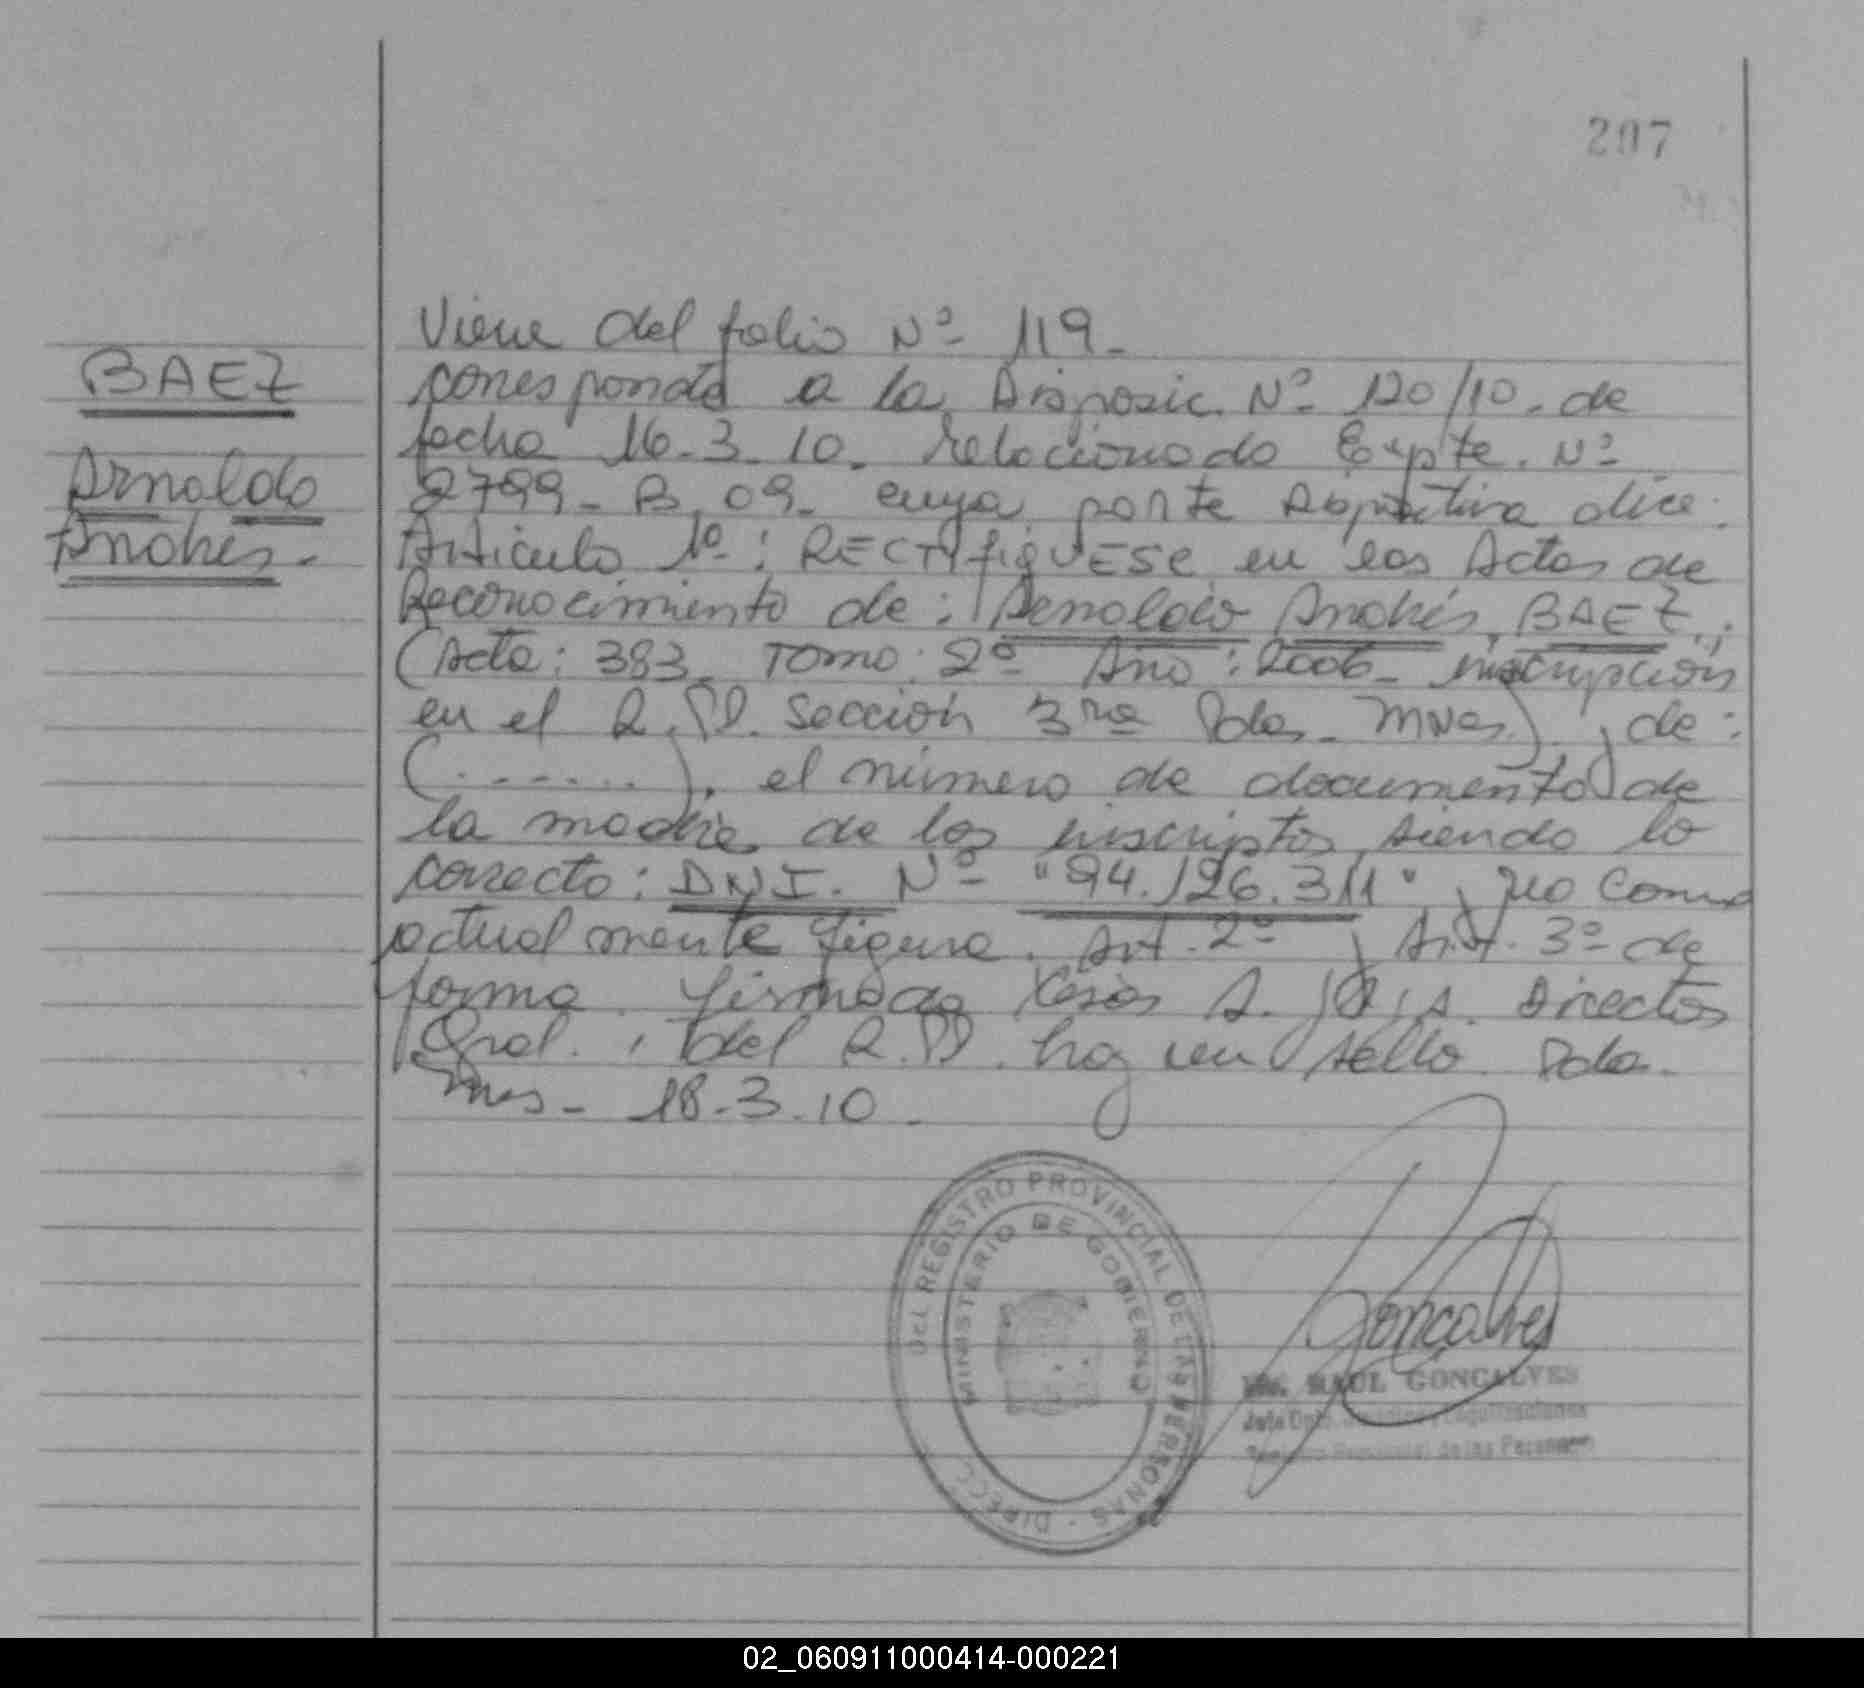 207
BAEZ
Arnoldo
Andrés.
Viene del folio Nº 119.
corresponde a la Disposic. Nº 120/10. de
fecha 16.3.10. relacionado Expte. Nº
2799- B. 09. cuya parte dispositiva dice:
Artículo 1º: RECTIfiQUESE en las Actas de
Reconocimiento de: Arnoldo Andrés BAEZ.;
(Acta: 383. Tomo: 2º Año: 2006- inscripción
en el R.P. Sección 3ra Pdas. Mnes), y de:
(.......), el número de documento de
la madre de los inscriptos siendo lo
correcto: DNI. Nº "94.126.311" y no como
actualmente figura. Art. 2º y Art. 3º de
forma. firmado A. Director
Gral. del R.P. hay un sello. Pdas.
Mnes- 18.3.10.
DIRECC. DEL REGISTRO PROVINCIAL DE LAS PERSONAS -
MINISTERIO DE GOBIERNO
Goncalves
RAUL GONCALVES
Jefe Dpto. Legalizaciones
Registro Provincial de las Personas
02_060911000414-000221